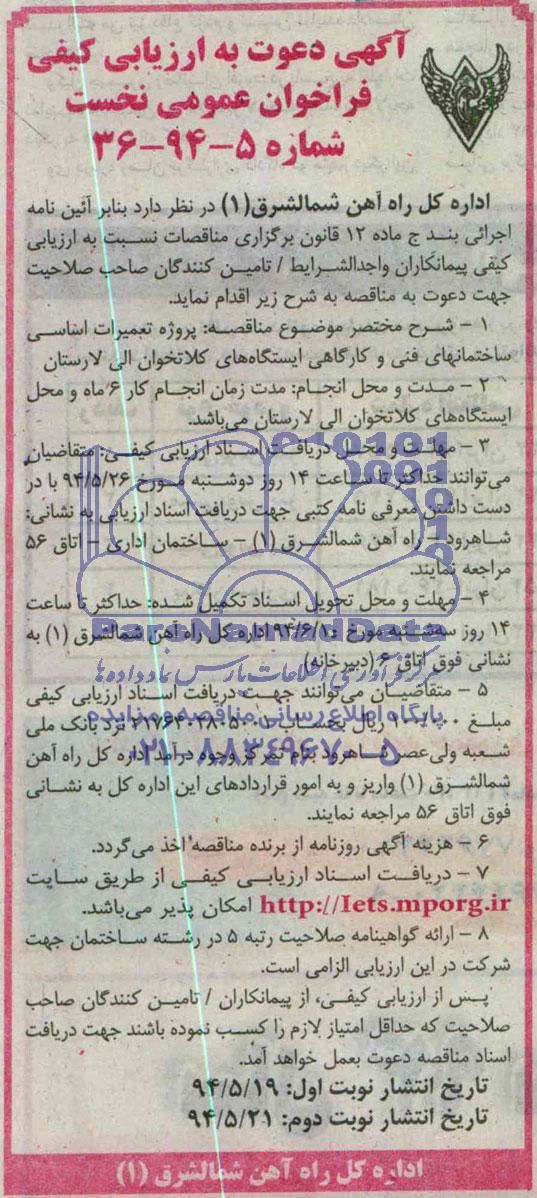 آگهی دعوت به ارزیابی کیفی
فراخوان عمومی نخست
شماره ۵-۹۴-۳۶
اداره کل راه آهن شمالشرق(۱) در نظر دارد بنابر آئین نامه
اجرائی بند ج ماده ۱۲ قانون برگزاری مناقصات نسبت به ارزیابی
کیفی پیمانکاران واجدالشرایط / تامین کنندگان صاحب صلاحیت
جهت دعوت به مناقصه به شرح زیر اقدام نماید.
۱ - شرح مختصر موضوع مناقصه: پروژه تعمیرات اساسی
ساختمانهای فنی و کارگاهی ایستگاه‌های کلاتخوان الی لارستان
۲ - مدت و محل انجام: مدت زمان انجام کار ۶ ماه و محل
ایستگاه‌های کلاتخوان الی لارستان می‌باشد.
۳ - مهلت و محل دریافت اسناد ارزیابی کیفی: متقاضیان
می‌توانند حداکثر تا ساعت ۱۴ روز دوشنبه مورخ ۹۴/۵/۲۶ با در
دست داشتن معرفی نامه کتبی جهت دریافت اسناد ارزیابی به نشانی:
شاهرود - راه آهن شمالشرق (۱) - ساختمان اداری - اتاق ۵۶
مراجعه نمایند.
۴ - مهلت و محل تحویل اسناد تکمیل شده: حداکثر تا ساعت
۱۴ روز سه‌شنبه مورخ ۹۴/۶/۱۰ اداره کل راه آهن شمالشرق (۱) به
نشانی فوق اتاق ۶ (دبیرخانه)
ParsNamadData
مرکز فرآوری اطلاعات پارس نماد داده‌ها
۵ - متقاضیان می‌توانند جهت دریافت اسناد ارزیابی کیفی
پایگاه اطلاع رسانی مناقصه و مزایده
مبلغ ریال بحساب نزد بانک ملی
۰۲۱-۸۸۳۴۹۶۷۰-۵
شعبه ولی‌عصر شاهرود بنام تمرکز وجوه درآمد اداره کل راه آهن
شمالشرق (۱) واریز و به امور قراردادهای این اداره کل به نشانی
فوق اتاق ۵۶ مراجعه نمایند.
۶ - هزینه آگهی روزنامه از برنده مناقصه اخذ می‌گردد.
۷ - دریافت اسناد ارزیابی کیفی از طریق سایت
http://Iets.mporg.ir امکان پذیر می‌باشد.
۸ - ارائه گواهینامه صلاحیت رتبه ۵ در رشته ساختمان جهت
شرکت در این ارزیابی الزامی است.
پس از ارزیابی کیفی، از پیمانکاران / تامین کنندگان صاحب
صلاحیت که حداقل امتیاز لازم را کسب نموده باشند جهت دریافت
اسناد مناقصه دعوت بعمل خواهد آمد.
تاریخ انتشار نوبت اول: ۹۴/۵/۱۹
تاریخ انتشار نوبت دوم: ۹۴/۵/۲۱
اداره کل راه آهن شمالشرق (۱)